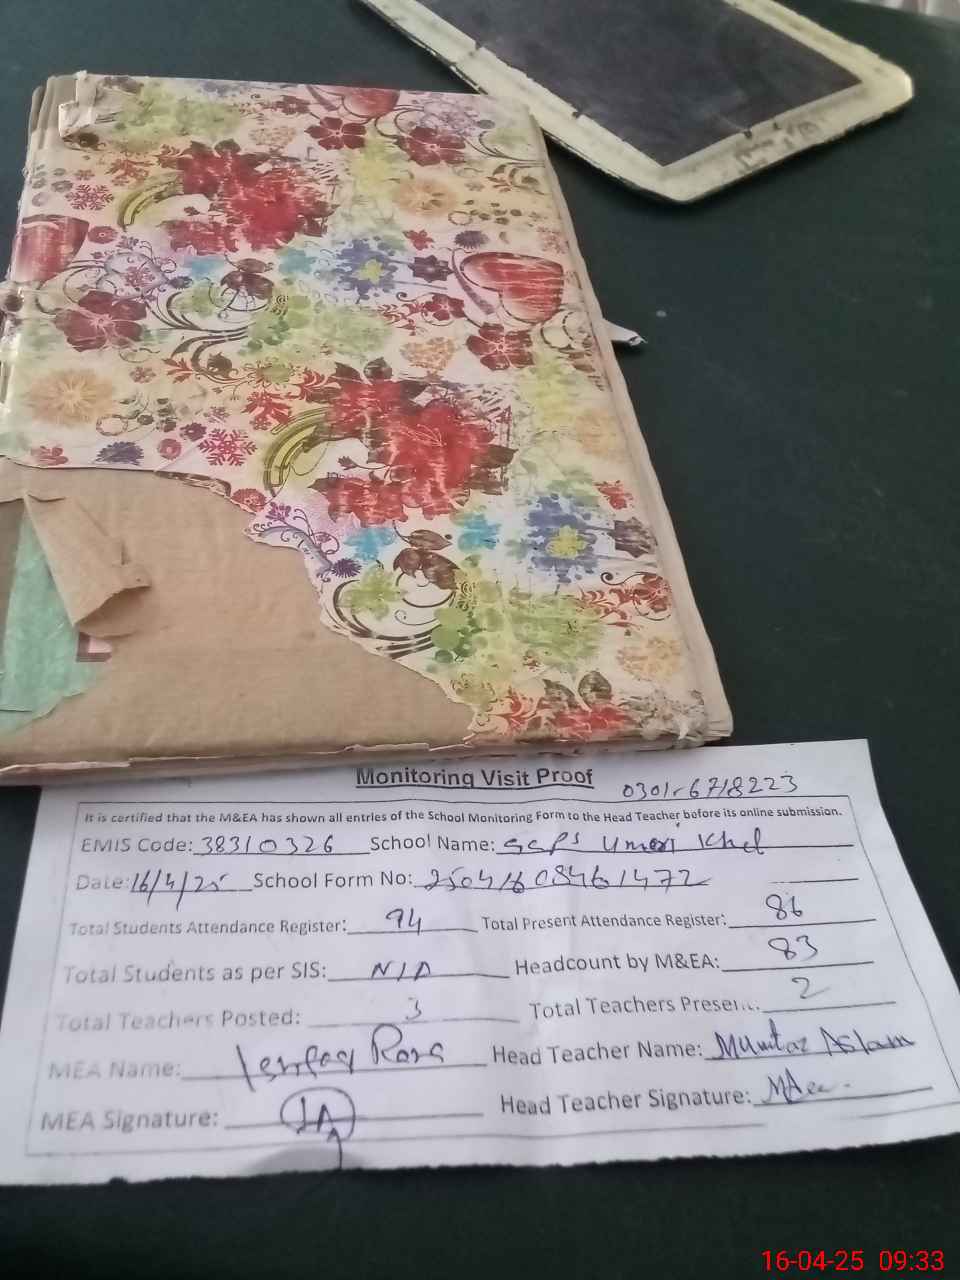 Monitoring Visit Proof 0301-6718223
It is certified that the M&EA has shown all entries of the School Monitoring Form to the Head Teacher before its online submission.
EMIS Code: 38310326 School Name: GGPS Umar Khel
Date: 16/4/25 School Form No: 25041608461472
Total Students Attendance Register: 94 Total Present Attendance Register: 86
Total Students as per SIS: N/A Headcount by M&EA: 83
Total Teachers Posted: 3 Total Teachers Present: 2
MEA Name: Head Teacher Name: Mumtaz Aslam
MEA Signature: Head Teacher Signature:
16-04-25 09:33